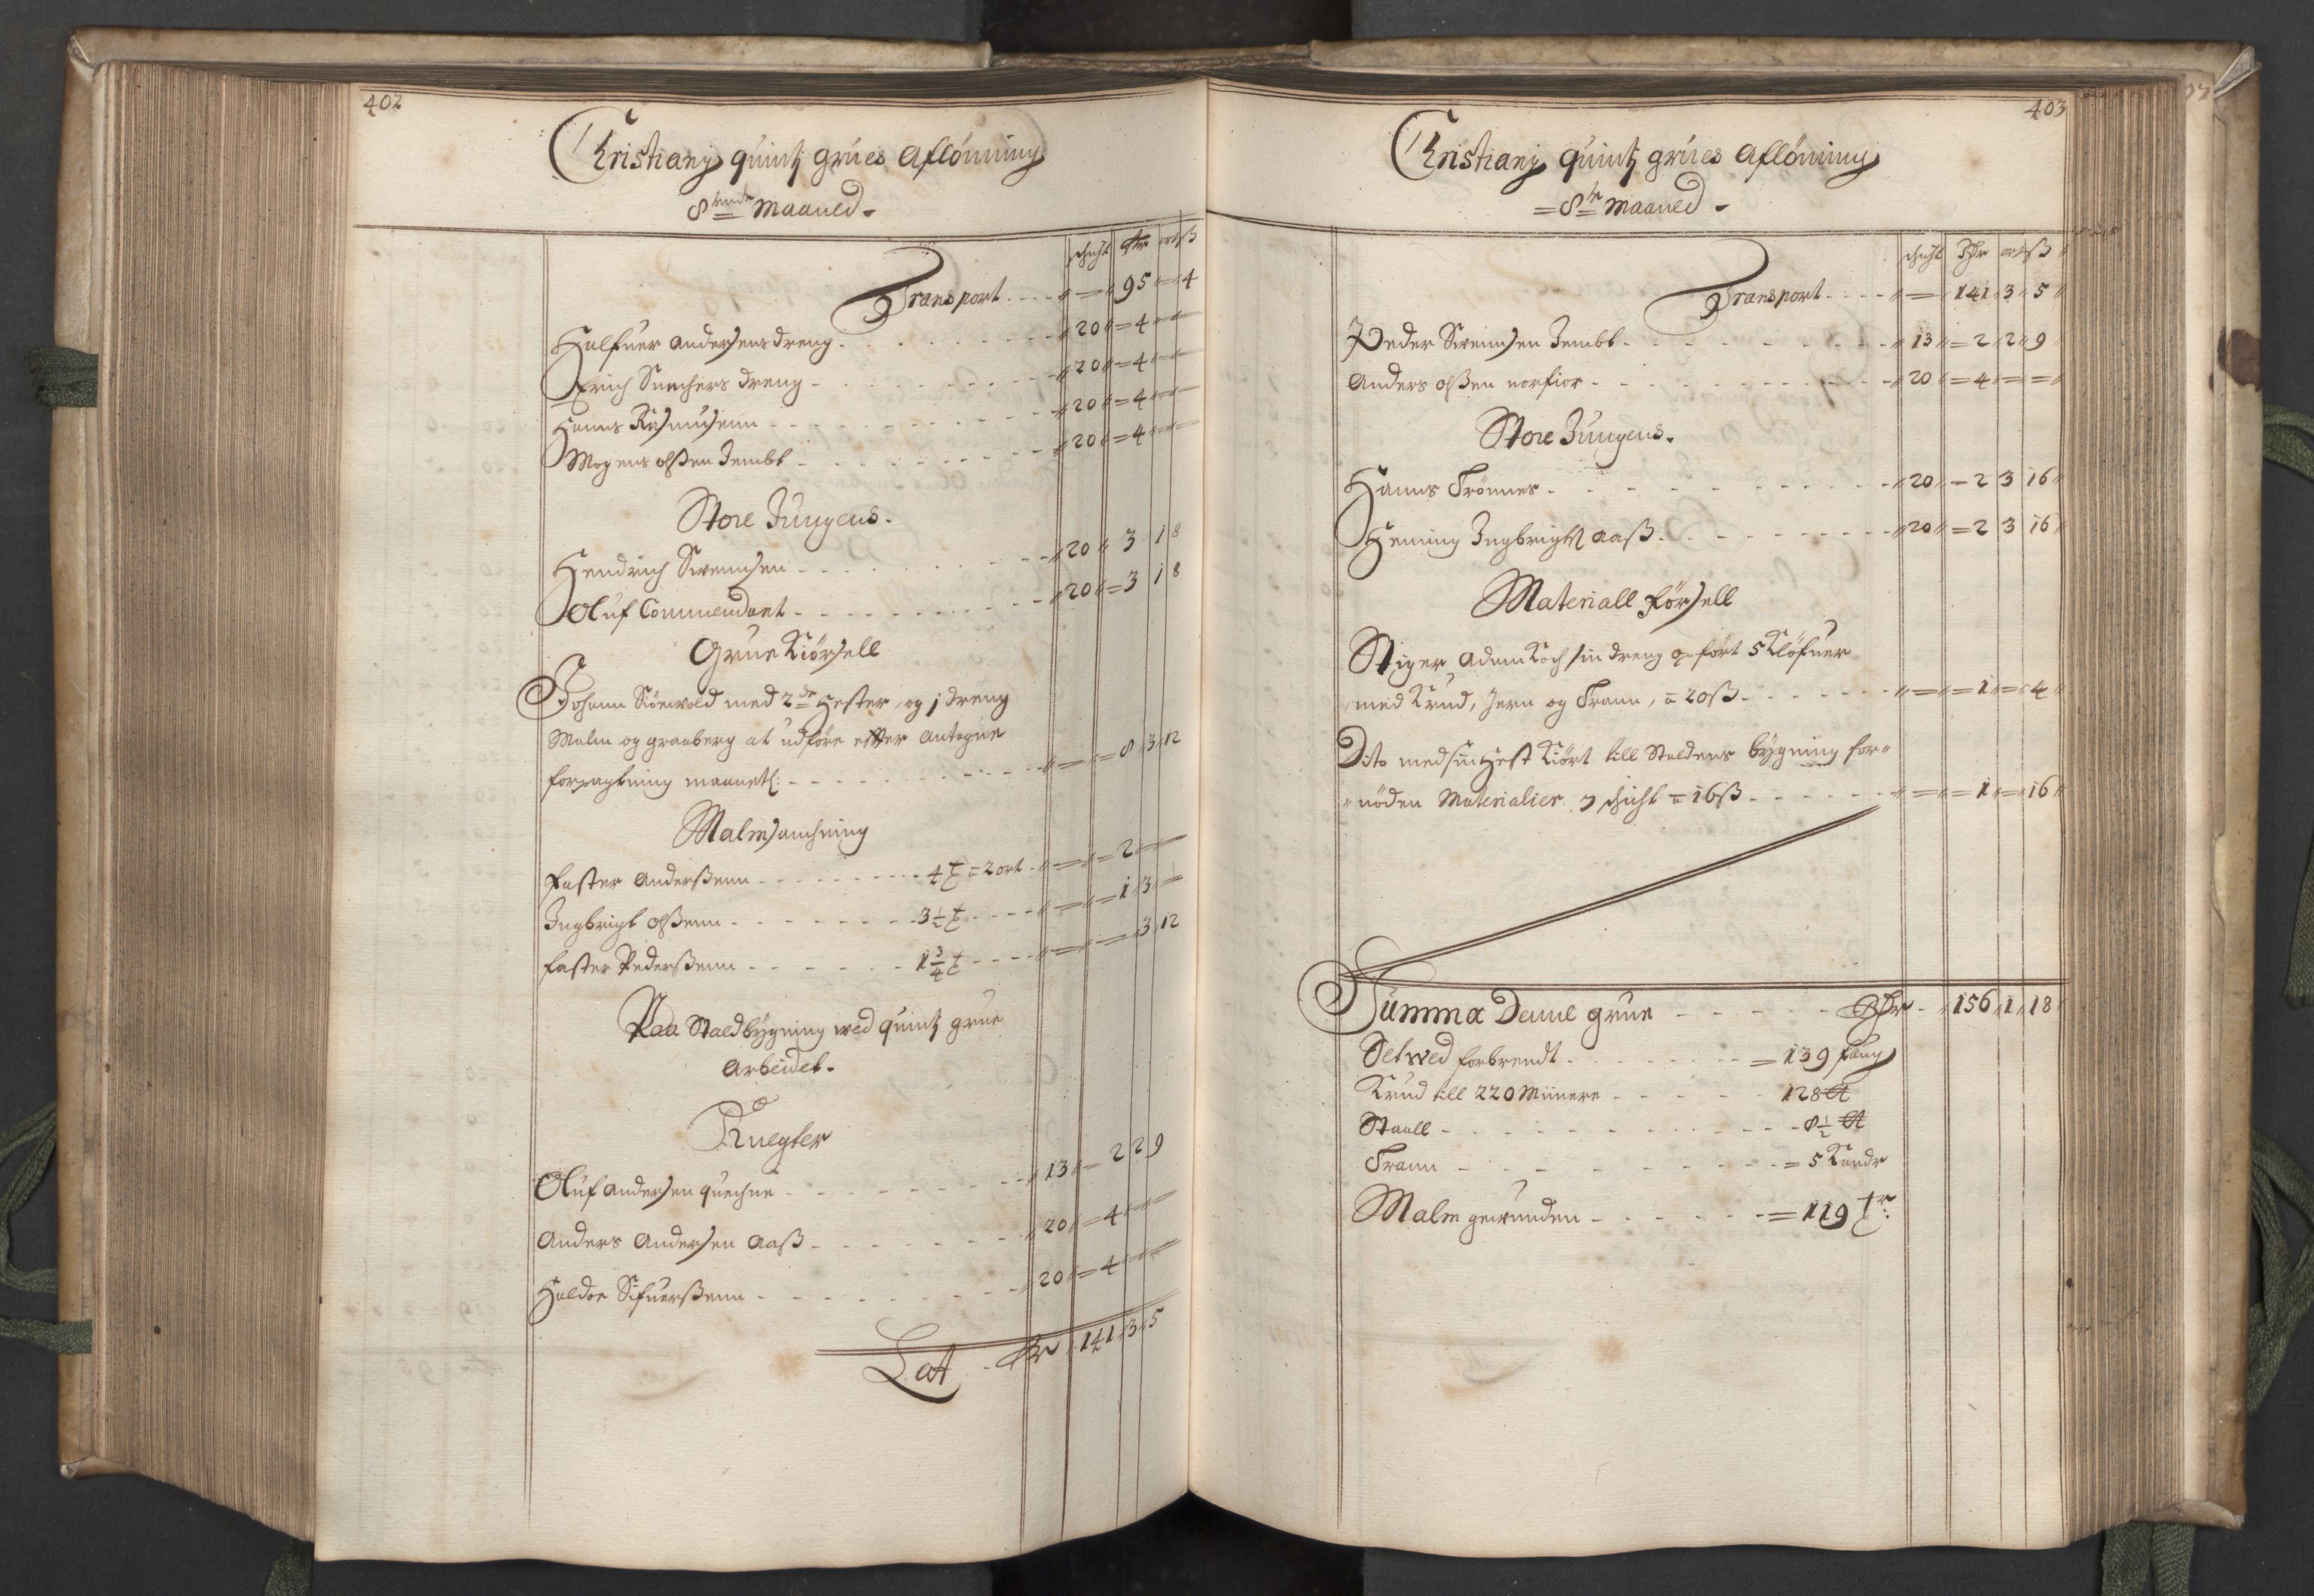 402
Christianj quintj grues Aflönning
8tende Maaned.
schicht Rdr ort ß
Transport - - - - 95 = 4
Halfuer Andersens dreng - 20 = 4
Erich Snechers dreng - 20 = 4
Hanns Rasmusenn - 20 = 4
Mogens olßen Jembt - 20 = 4
Store Jungens.
Hendrich Swensen - 20 3 1 8
Oluf Commendant - 20 = 3 1 8
Grue Kiörsell
Johann Siönvold med 2de Hester, og j dreng
Malm og graaberg at udföre effter antagne
forpagtning maanetl: - = 8 3 12
Malmsanchning
faster Anderßenn - 4 t a 2 ort - = 2
Ingbrigt olßenn - 3 1/2 t - = 1 3
faster Pederßenn - 1 3/4 t - = 3 12
Paa Staldbÿgning wed quintj grue
Arbeidet.
Knegter
Oluf Andersen quechne - 13 = 2 2 9
Anders Andersen Aaß - 20 = 4
Haldor Sifuerßenn - 20 = 4
Lat - Rdr 141 3 5
403
Christianj quintj grues Aflöning
= 8de Maaned -
schicht Rdr ort ß
Transport - - - - = 141 3 5
Peder Swensen Jembt - 13 = 2 2 9
Anders olßen norfior - 20 = 4 = =
Store Jungens.
Hanns Trönnes - 20 - 2 3 16
Hening Ingbrigtz Aaß - 20 = 2 3 16
Materiall försell
Stiger Adam Koch sin dreng opfört 5 Klöfuer
med Krud, Jern og Trann, a 20ß - = = 1 = 4
Dito med sin Hest Kiört till Staldens bÿgning for=
=nöden Materialier 7 schicht a 16ß - = = 1 = 16
Summa Denne grue - Rdr - 156 1 18
Setwed forbrendt - = 139 faug
Krud till 220 Minere - 128 ℔
Staall - 8 1/2 ℔
Trann - = 5 Kandr
Malm gewunden - = 119 tr: